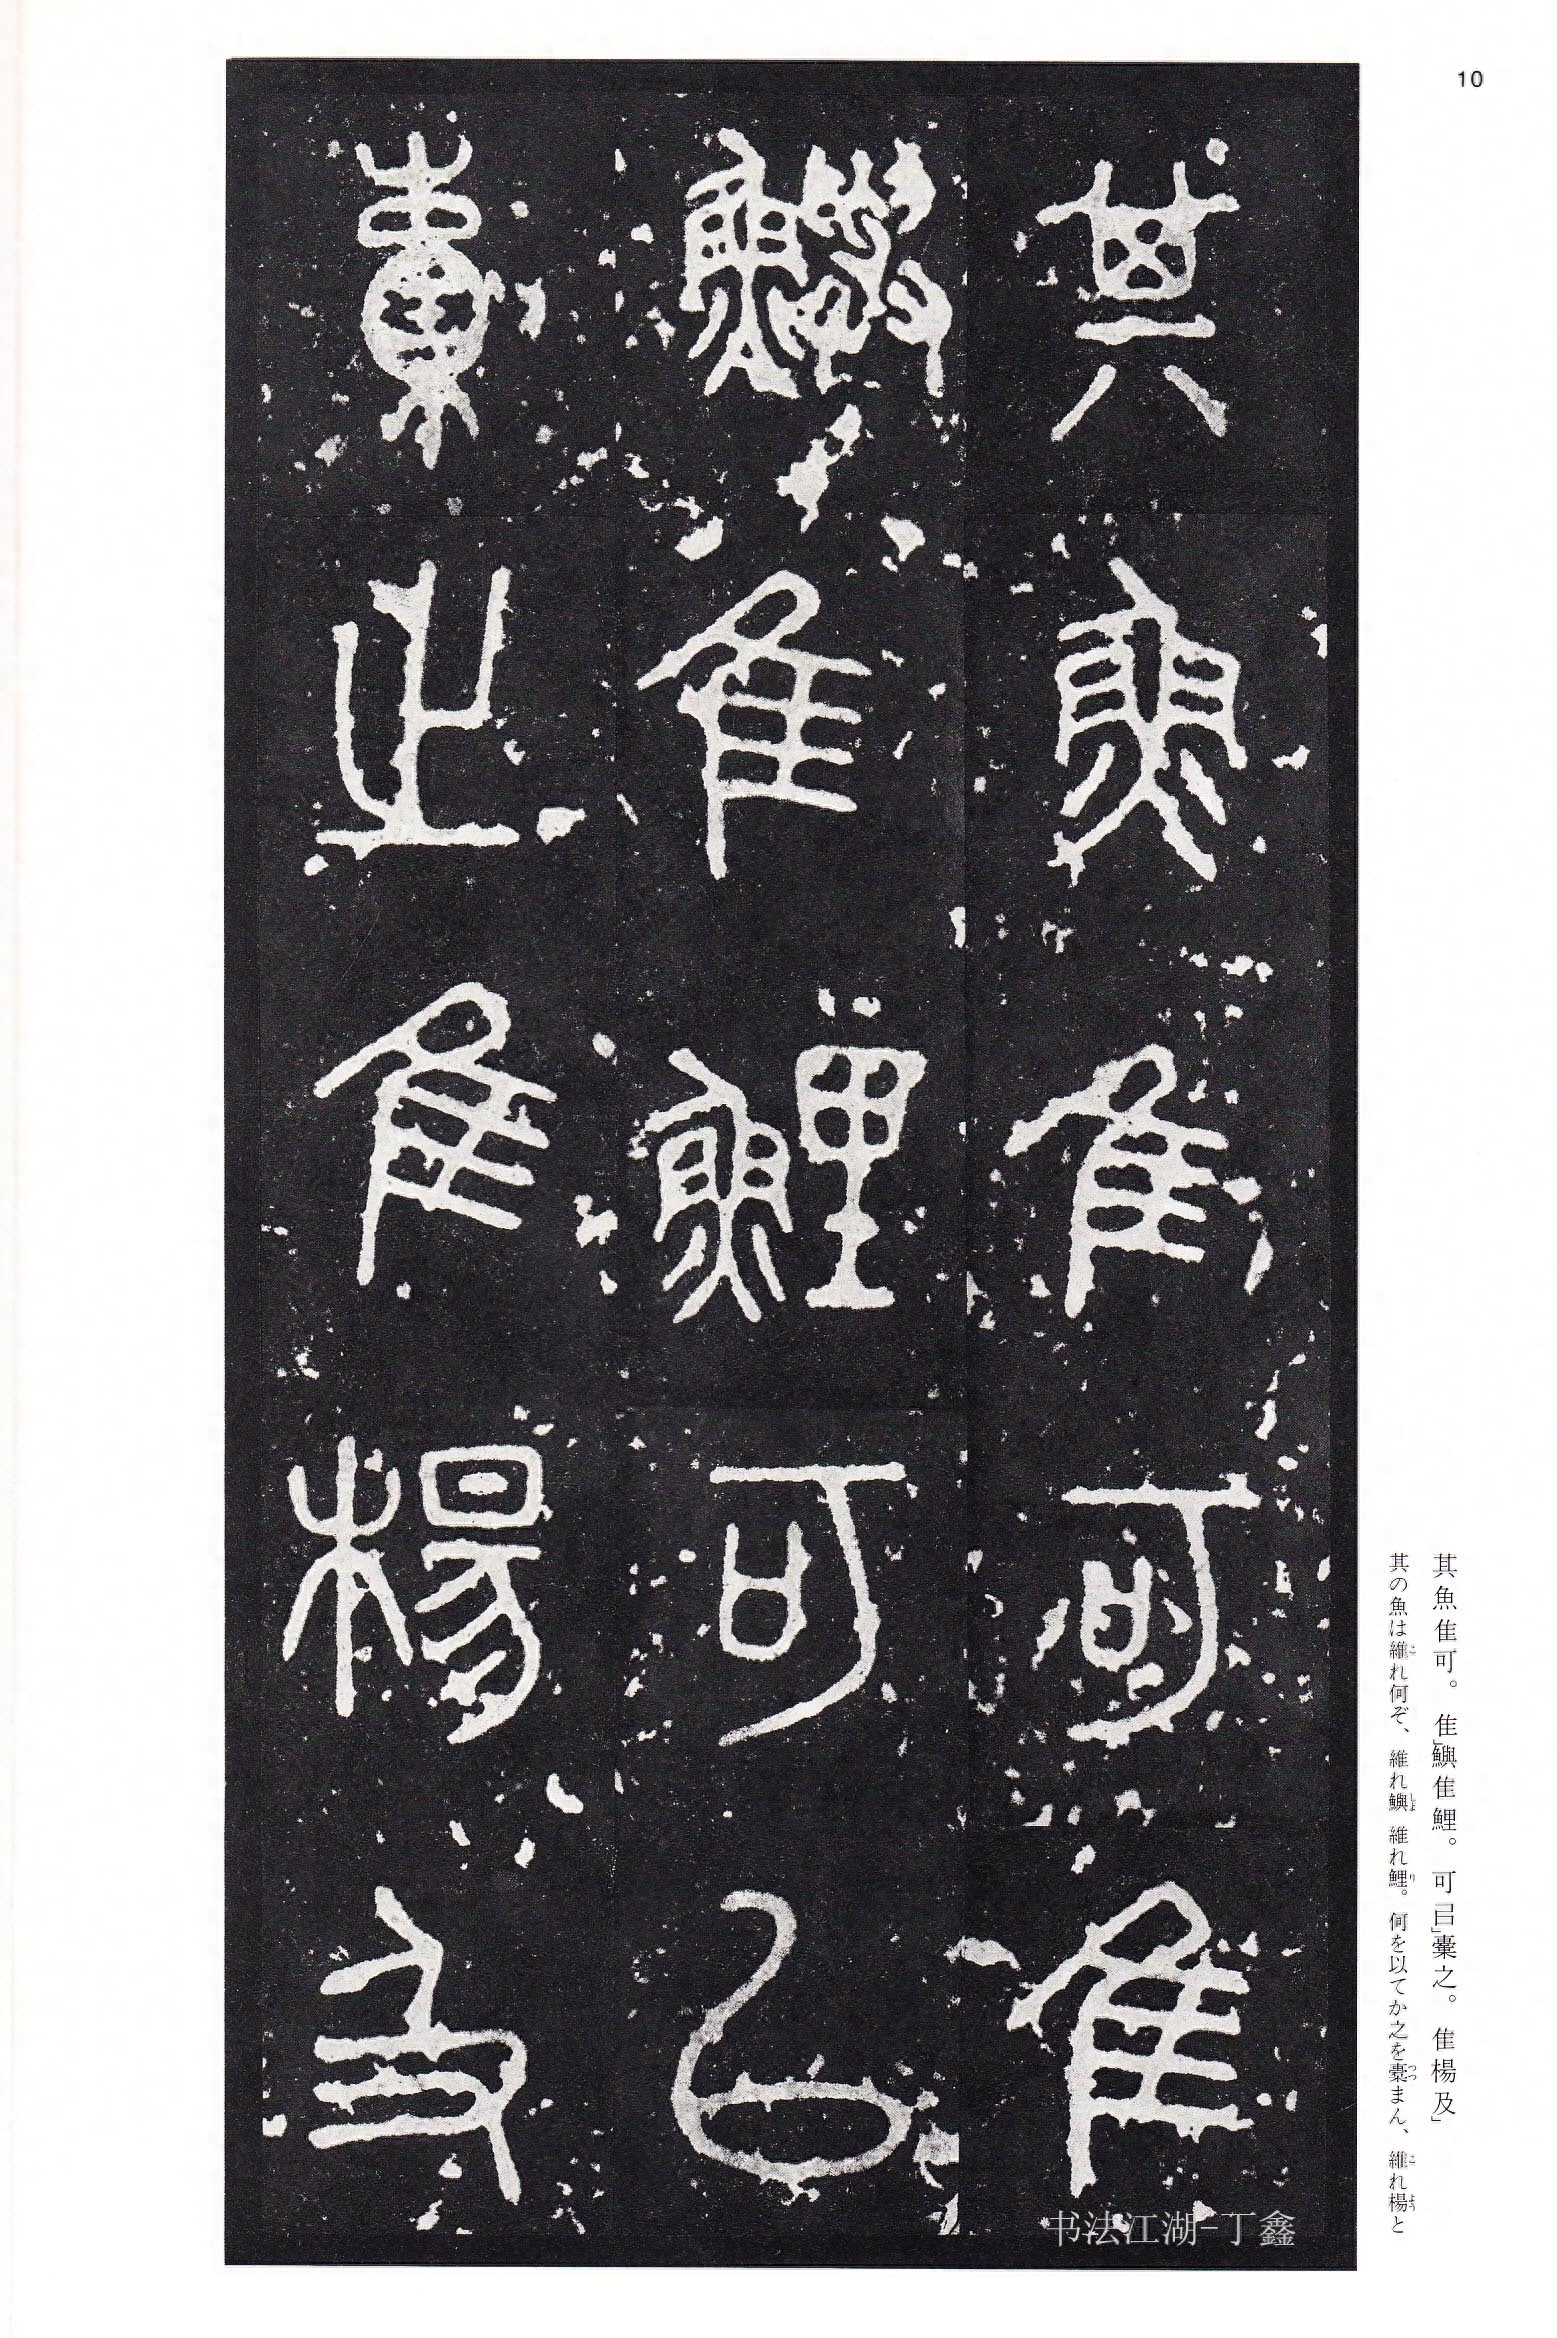 10
其魚隹可
隹鱮隹鯉可㠯
橐之隹楊及
其魚隹可。隹」鱮隹鯉。可㠯」橐之。隹楊及」
其の魚は維れ何ぞ、維れ鱮維れ鯉。何を以てか之を橐まん、維れ楊と
书法江湖-丁鑫